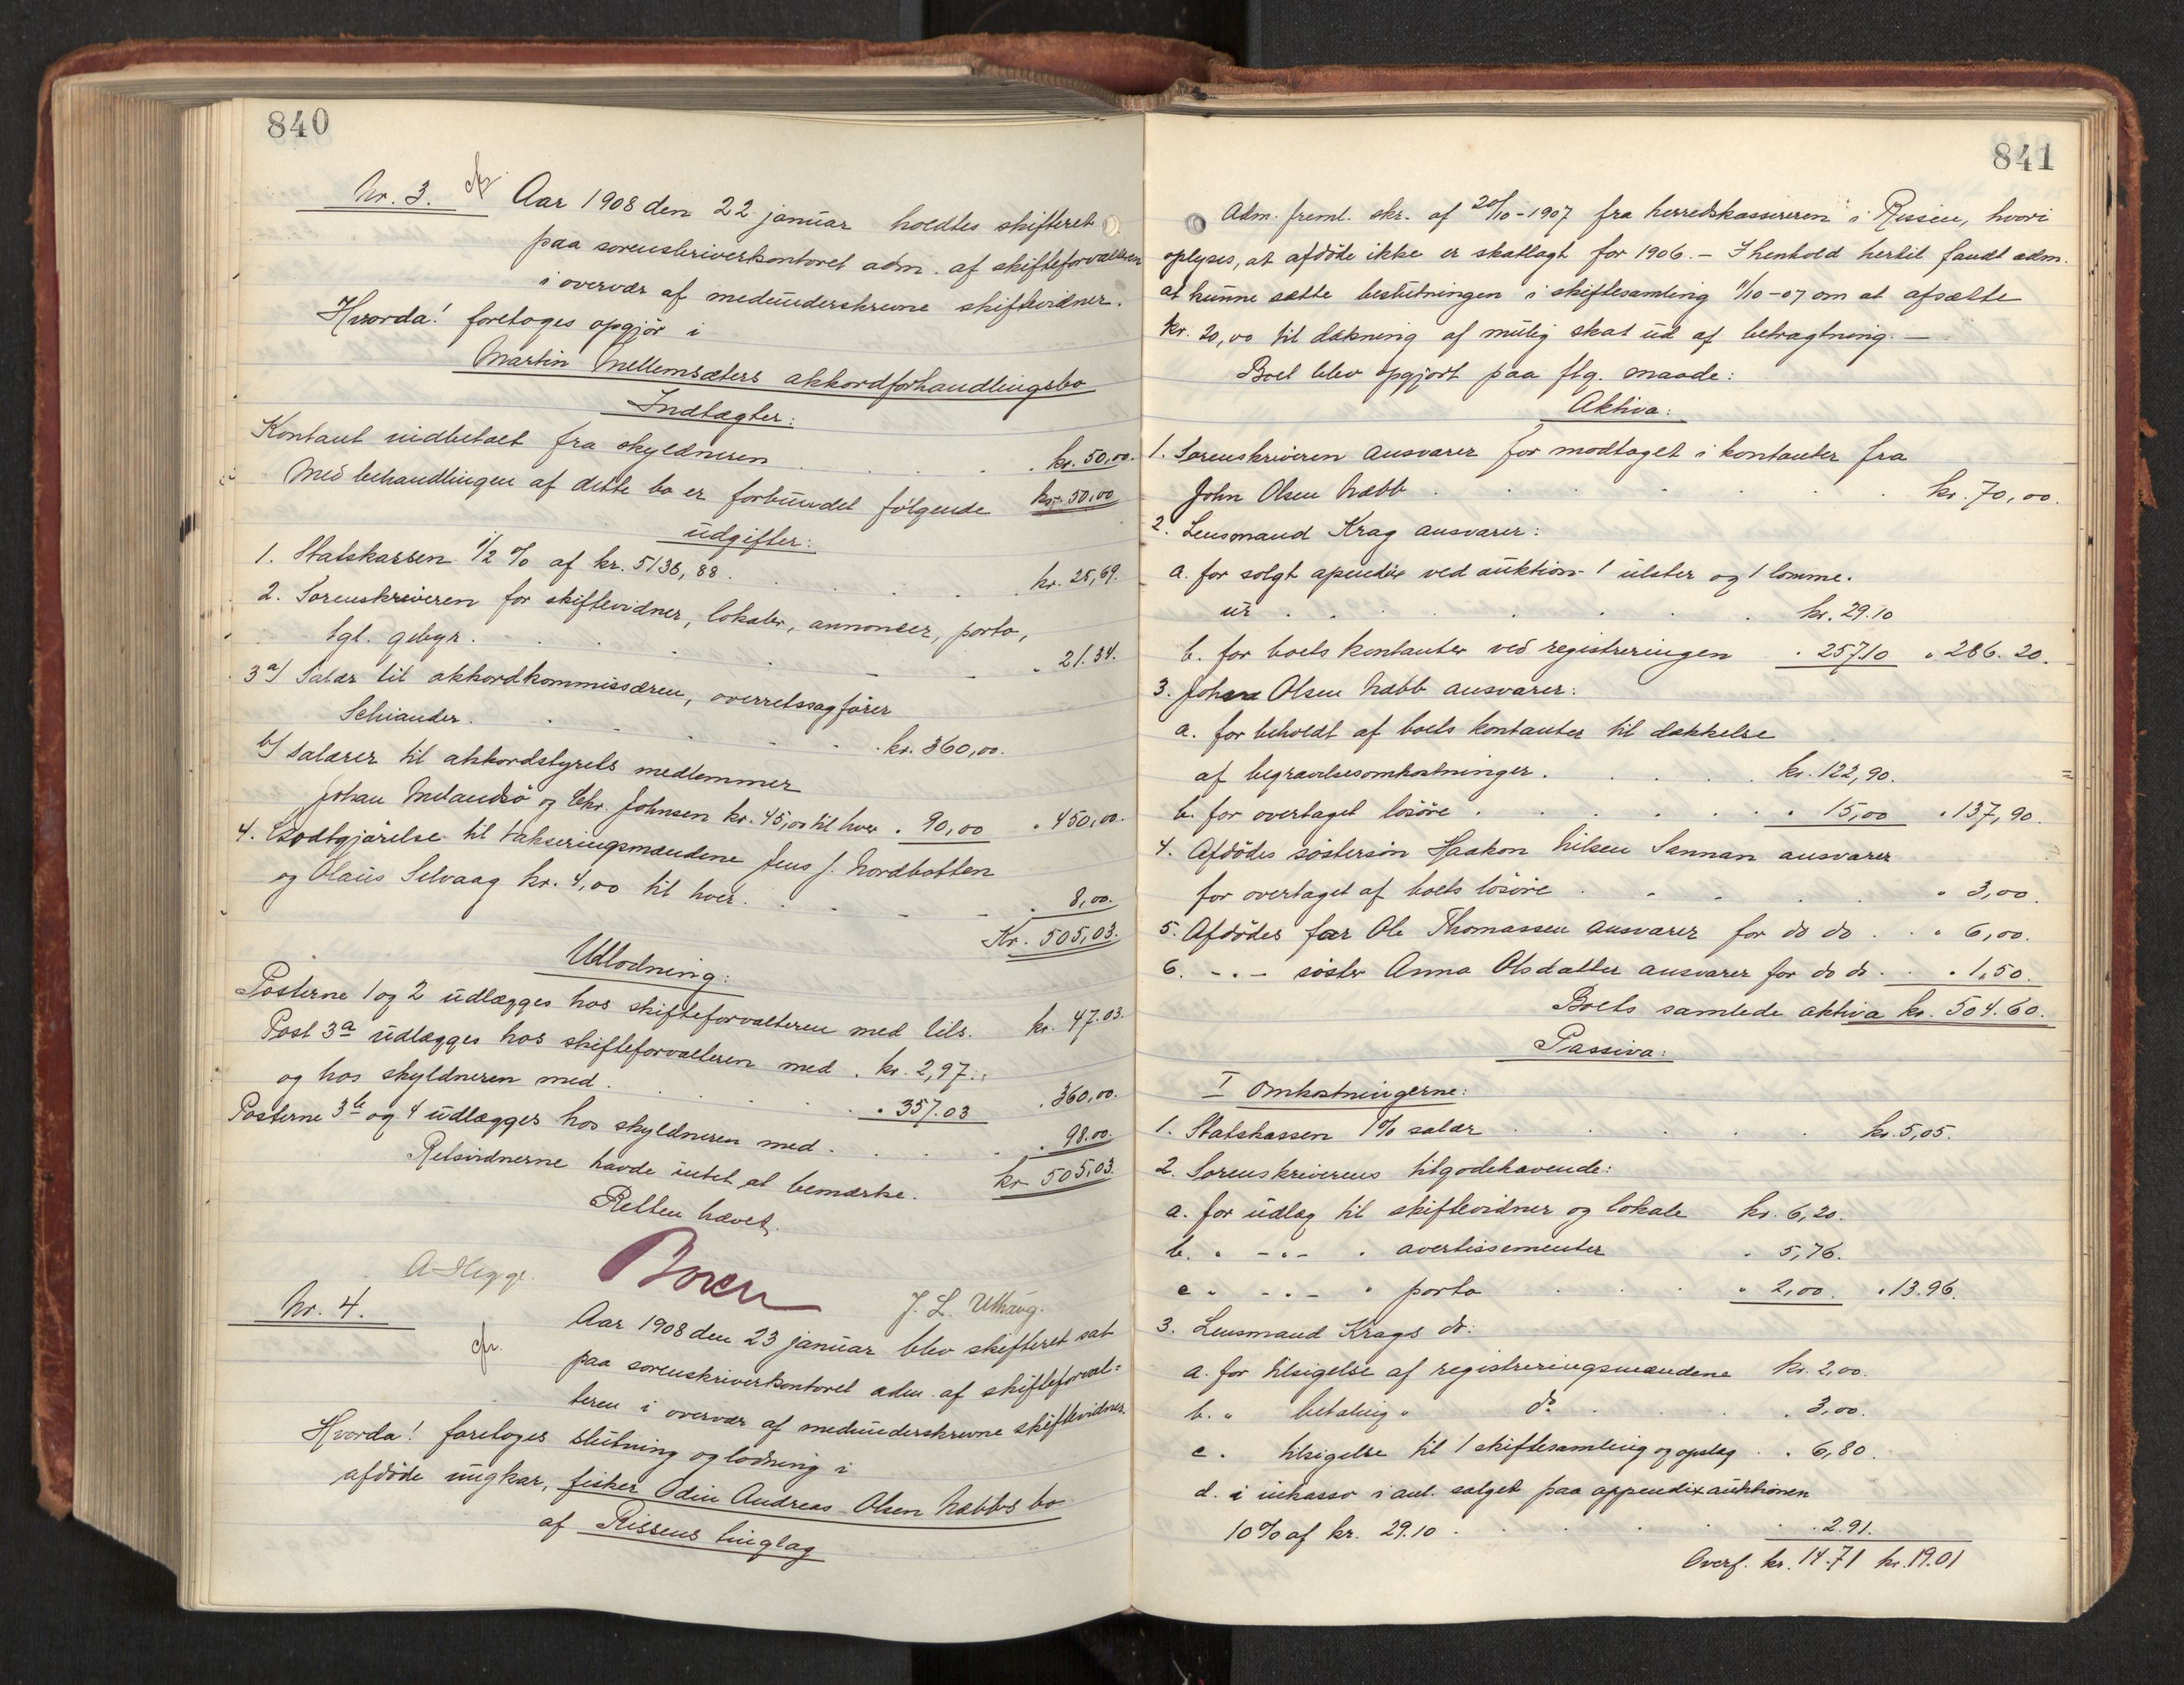 840
Nr. 3. cfr. Aar 1908 den 22 januar holdtes skifteret
paa sorenskriverkontoret adm. af skifteforvalteren
i overvær af medunderskrevne skiftevidner.
Hvorda! foretoges opgjør i
Martin Mellemsæters akkordforhandlingsbo
Indtægter:
Kontant indbetalt fra skyldneren . . . . kr. 50,00.
kr. 50,00
Med behandlingen af dette bo er forbundet følgende
udgifter:
1. Statskassen 1/2 % af kr. 5136,88 . . . . kr. 25,69.
2. Sorenskriveren for skiftevidner, lokaler, annoncer, porto,
tgl. gebyr . . . . " 21.34.
3 a/ Salær til akkordkommissæren, overretssagfører
Schiander . . . . kr. 360,00.
b/ salærer til akkordstyrets medlemmer
Johan Melandsø og Chr. Johnsen kr. 45,00 til hver " 90,00 " 450,00.
4. Godtgjørelse til takseringsmændene Jens J. Nordbotten
og Olaus Selvaag kr. 4,00 til hver . . . . 8,00.
Kr. 505,03.
Udlodning:
Posterne 1 og 2 udlægges hos skifteforvalteren med tils. kr. 47.03.
Post 3a udlægges hos skifteforvalteren med . kr. 2,97.
og hos skyldneren med . . . . " 357.03 " 360,00.
Posterne 3b og 4 udlægges hos skyldneren med . . . . " 98.00.
kr. 505,03.
Retsvidnerne havde intet at bemærke.
Retten hævet.
A Hegge. Boren J. L. Uthaug.
Nr. 4. cfr. Aar 1908 den 23 januar blev skifteret sat
paa sorenskriverkontoret adm. af skifteforval=
teren i overvær af medunderskrevne skiftevidner
Hvorda! foretoges slutning og lodning i
afdøde ungkar, fisker Odin Andreas Olsen Næbbs bo
af Rissens tinglag
841
Adm. freml. skr. af 20/10-1907 fra herredskassereren i Rissen, hvori
oplyses, at afdøde ikke er skatlagt for 1906. - I henhold hertil fandt adm.
at kunne sætte beslutningen i skiftesamling 11/10-07 om at afsætte
kr. 20,00 til dækning af mulig skat ud af betragtning. -
Boet blev opgjort paa flg. maade:
Aktiva:
1. Sorenskriveren ansvarer for modtaget i kontanter fra
John Olsen Næbb . . . . kr. 70,00.
2. Lensmand Krag ansvarer:
a. for solgt apendix ved auktion 1 ulster og 1 lomme.
ur . . . . kr. 29.10
b. for boets kontanter ved registreringen " 257.10 " 286.20.
3. Johan Olsen Næbb ansvarer:
a. for beholdt af boets kontanter til dækkelse
af begravelsesomkostninger . . . . kr. 122,90.
b. for overtaget løsøre . . . . " 15,00 " 137,90.
4. Afdødes søstersøn Haakon Nilsen Sannan ansvarer
for overtaget af boets løsøre . . . . " 3,00.
5. Afdødes far Ole Thomassen ansvarer for do do . . " 6,00.
6. - " - søster Anna Olsdatter ansvarer for do do . . " 1,50.
Boets samlede aktiva kr. 504.60.
Passiva:
I Omkostningerne:
1. Statskassen 1% salær . . . . kr. 5,05.
2. Sorenskriverens tilgodehavende:
a. for udlæg til skiftevidner og lokale kr. 6,20.
b. " - " - " avertissementer " 5,76.
c " - " - " porto . . . " 2,00. " 13.96.
3. Lensmand Krags do:
a. for tilsigelse af registreringsmændene kr. 2,00.
b. " betaling " do . . . " 3,00.
c. tilsigelse til 1 skiftesamling og opslag . " 6,80.
d. i inkasso i anl. salget paa appendixauktionen
10% af kr. 29.10 . . . . " 2.91.
Overf. kr. 14.71 kr. 19.01